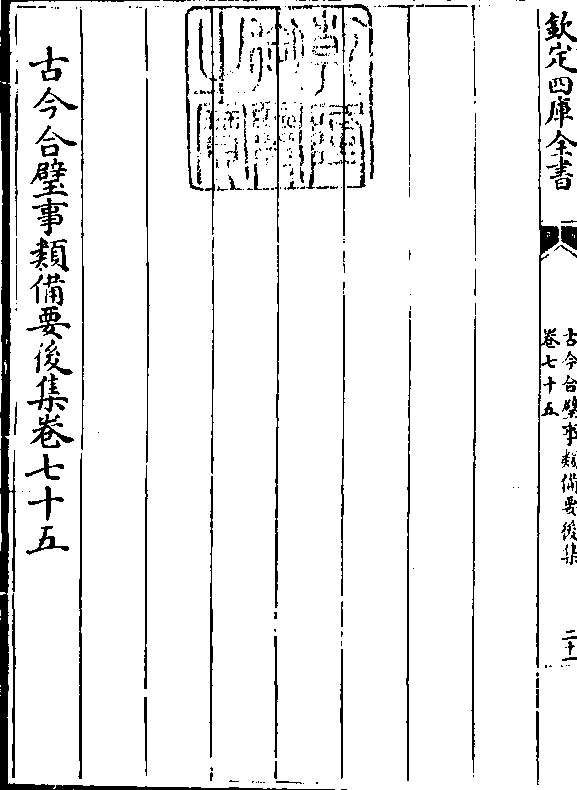 欽定四庫全書
古今合璧事類備要後集
卷七十五
二十一
古今合璧事類備要後集卷七十五